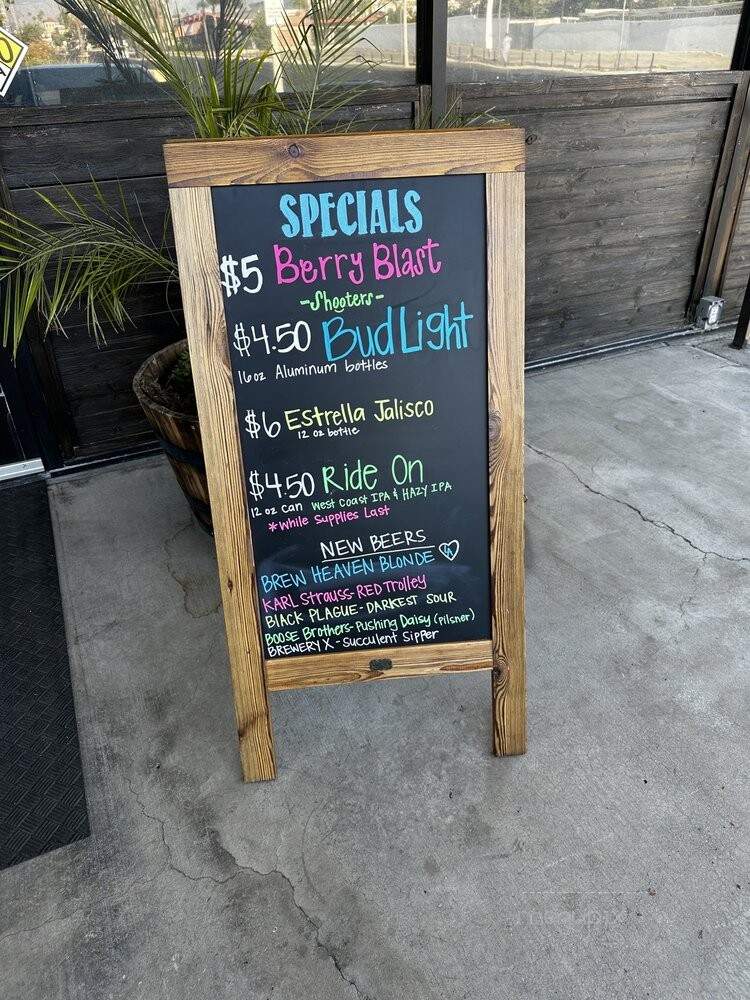 SPECIALS
$5 Berry Blast
-Shooters-
$4.50 Bud Light
16 oz Aluminum bottles
$6 Estrella Jalisco
12 oz bottle
$4.50 Ride On
12 oz can West Coast IPA & HAZY IPA
*While Supplies Last
NEW BEERS
BREW HEAVEN BLONDE LA
KARL Strauss-RED Trolley
BLACK PLAGUE-DARKEST SOUR
BOOSE Brothers-Pushing Daisy (Pilsner)
BREWERY X - Succulent Sipper